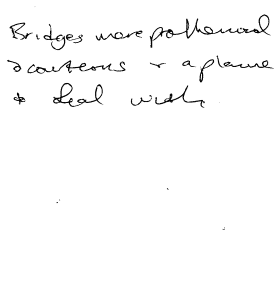 Bridges more professional
& courteous & a pleasure
to deal with